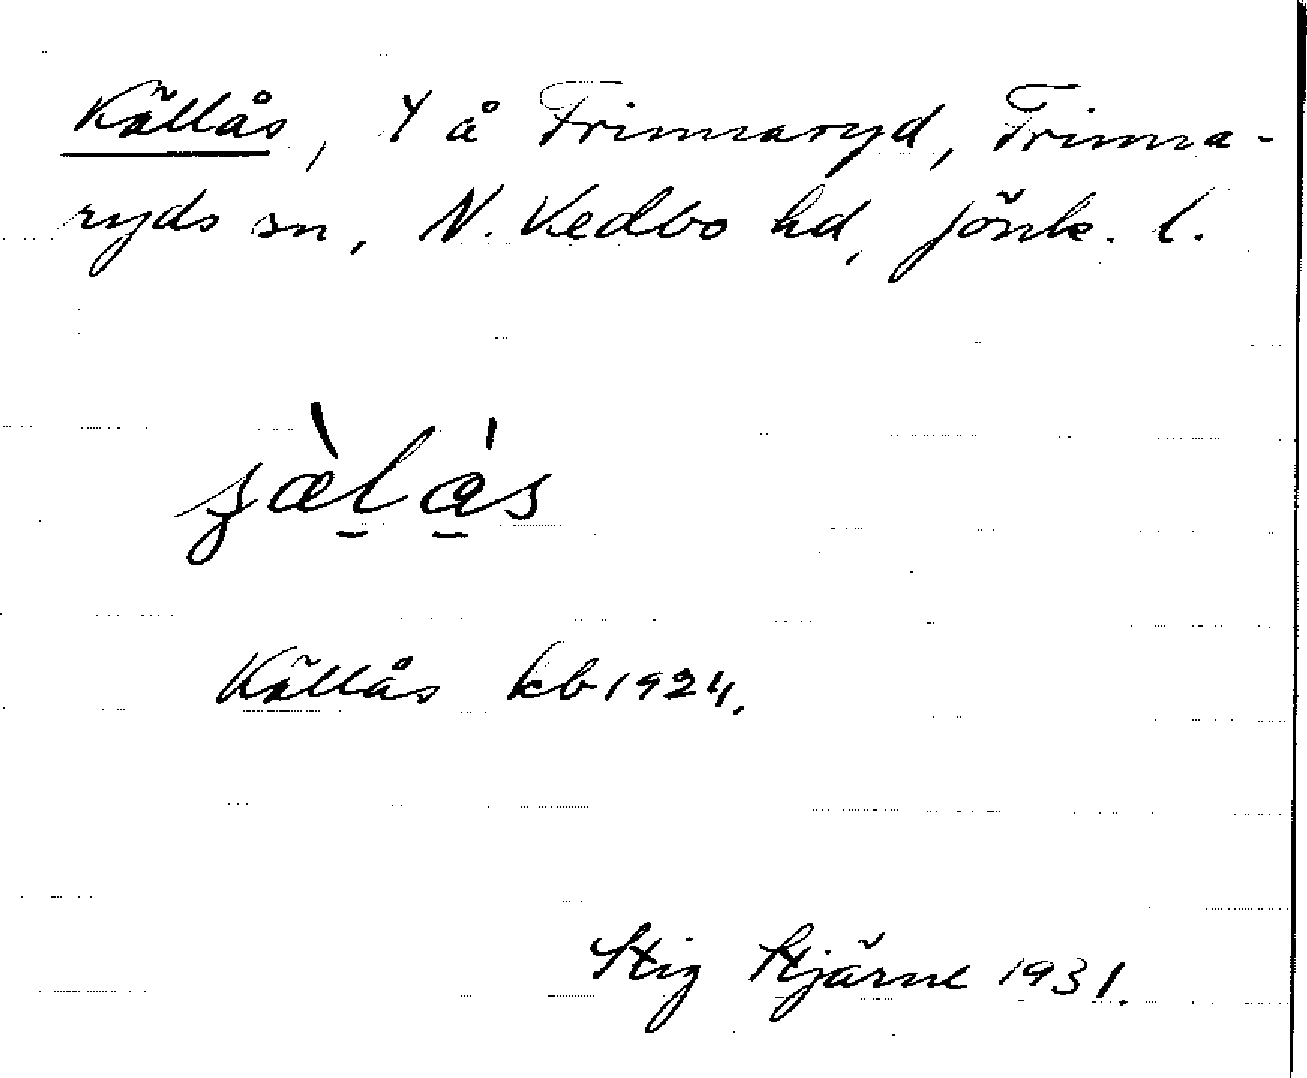 Källås, Y å Frinnaryd, Frinna-
ryds sn, N. Vedbo hd, Jönk. l.
Källås kb 1924.
Stig Stjärne 1931.